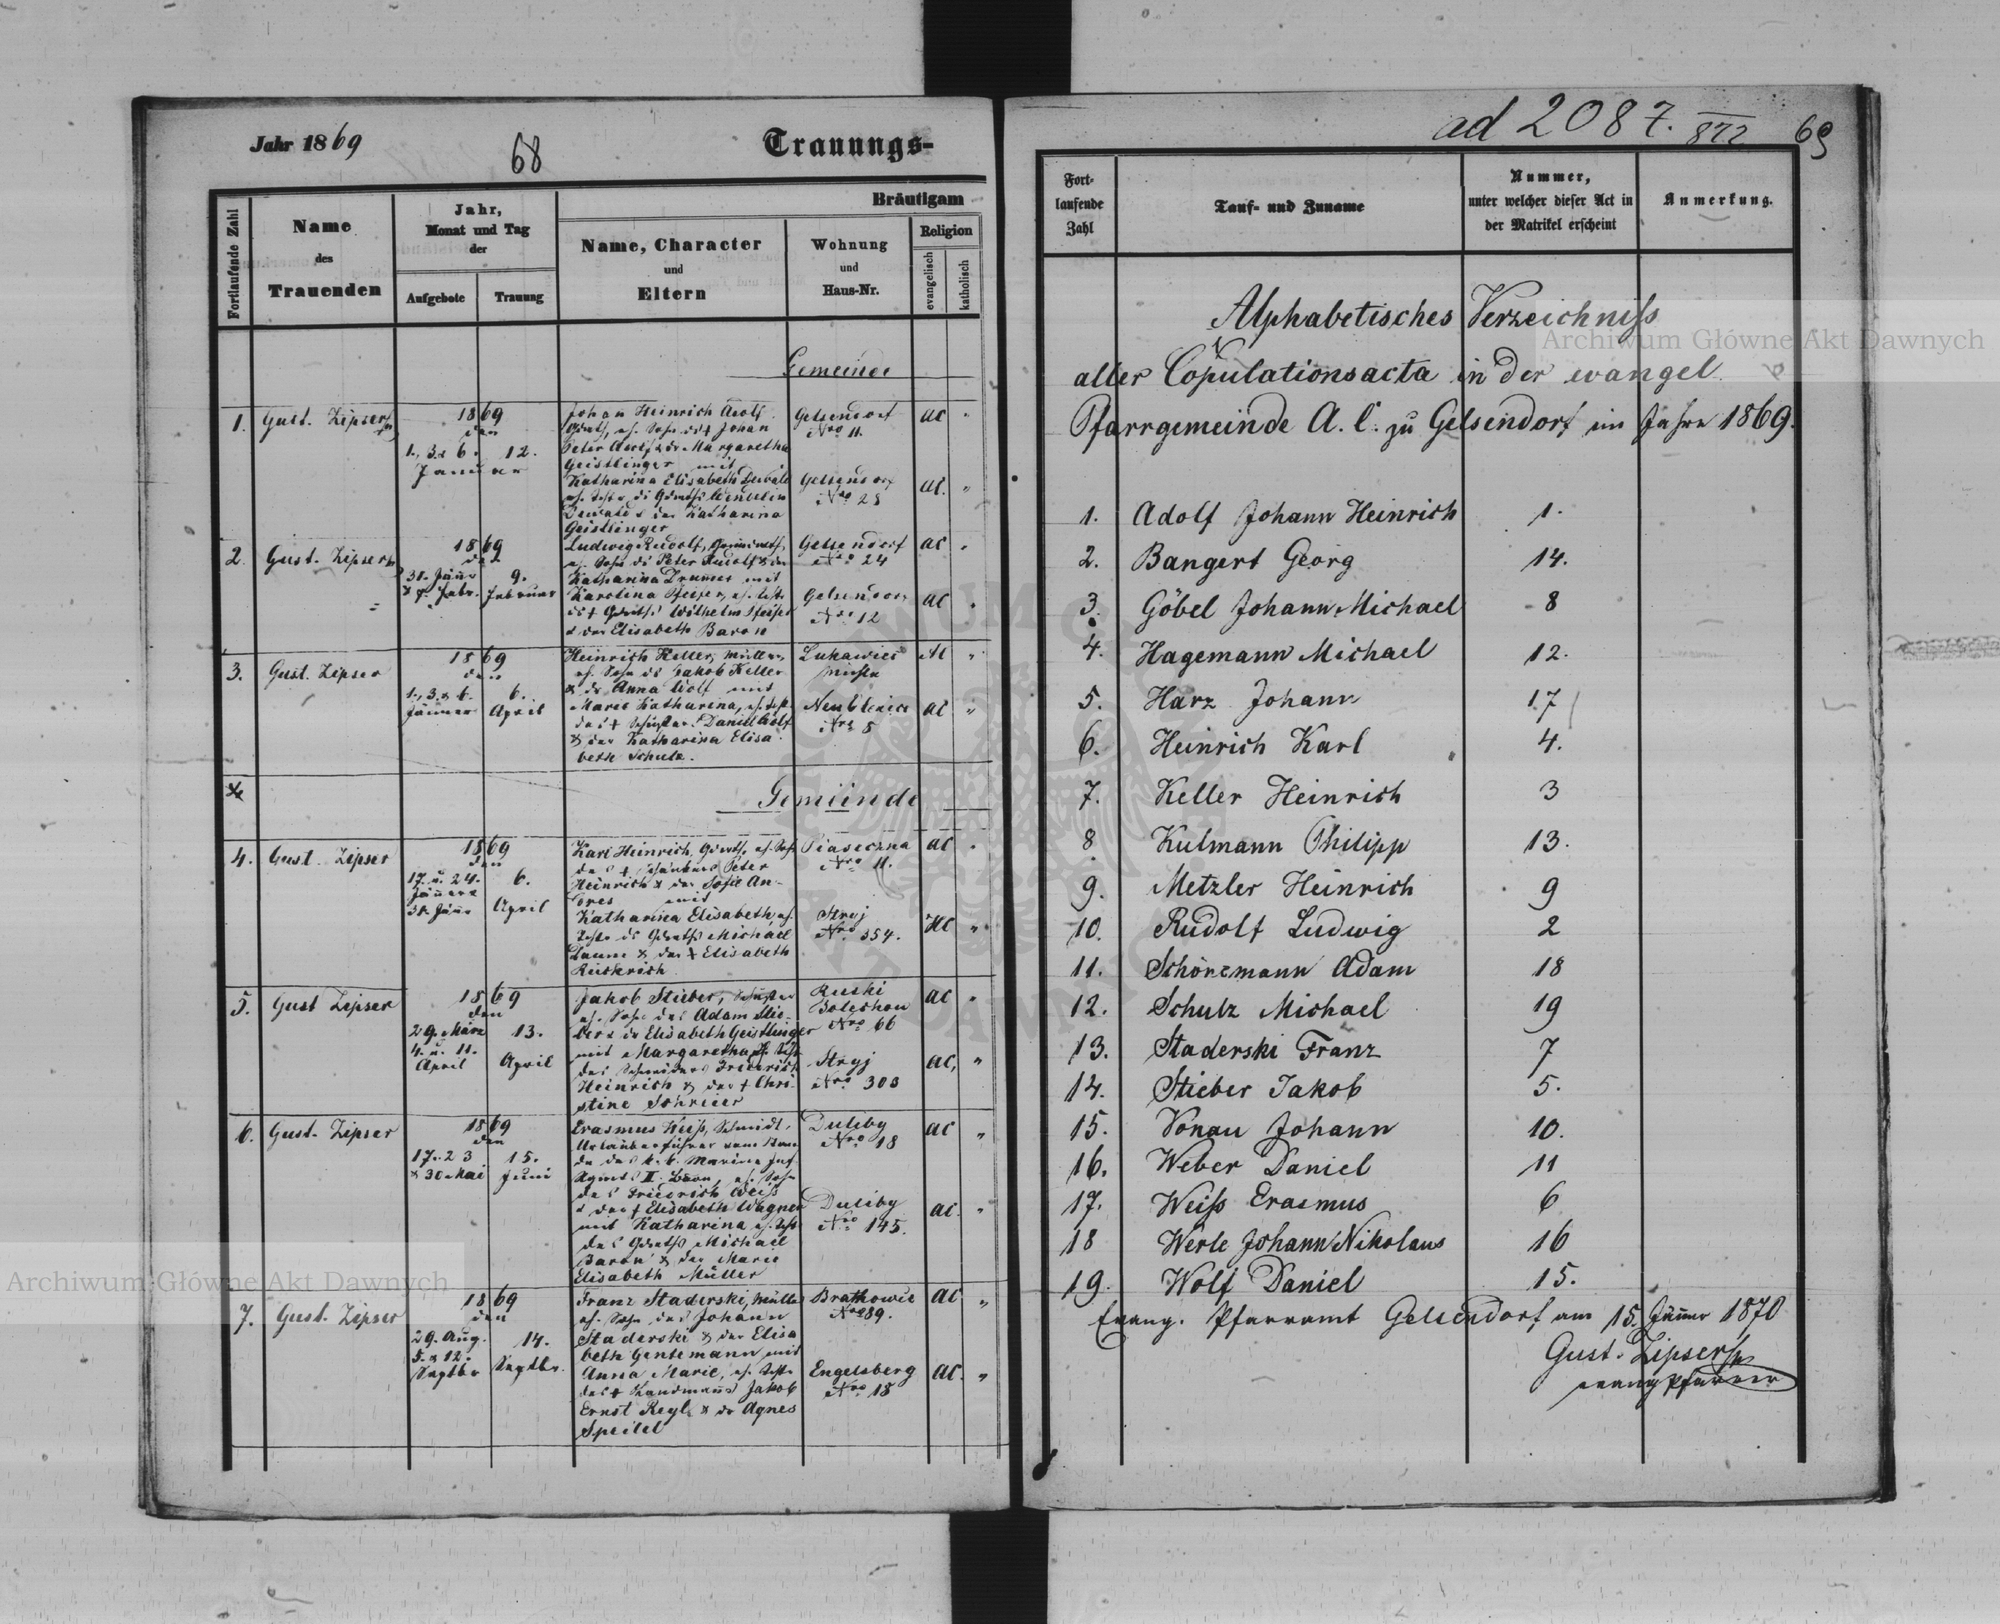 Jahr 1869
68
Trauungs-
Fortlaufende Zahl
Name
des
Trauenden
Jahr,
Monat und Tag
der
Aufgebote
Trauung
Bräutigam
Name, Character
und
Eltern
Wohnung
und
Haus-Nr.
Religion
evangelisch
katholisch
Gemeinde
1. Gust. Zipser
1869
den
1., 3. & 6. 12.
Januar
Johan Heinrich Adolf
Johan
Peter Adolf & der Margaretha
Geistlinger mit
Gelsendorf
Nro 11.
AC "
Katharina Elisabeth
Katharina
Geistlinger
Gelsendorf
Nro 28
AC. "
2. Gust. Zipser
1869
den
31. Jänn 9.
& 7. Febr. Februar
Ludwig Rudolf,
Peter Rudolf & der
Katharina Drumm mit
Gelsendorf
Nro 24
AC "
Karolina Pfeifer,
Wilhelm Pfeifer
& der Elisabeth Baron
Gelsendorf
Nro 12
AC "
3. Gust. Zipser
1869
den
1., 3. & 6. 6.
Jänner April
Heinrich Keller, Müller,
Jakob Keller
& der Anna Wolf mit
Marie Katharina,
Daniel Wolf
& der Katharina Elisa
beth Schulz.
AC "
Nro 5
AC "
Gemeinde
4. Gust. Zipser
1869
den
17. u. 24. 6.
Jänner April
31. Jänn
Karl Heinrich,
des Peter
Heinrich & der Sofie An-
dres mit
Katharina Elisabeth,
Michael
Daum & der † Elisabeth
Rückrich
Piaseczna
Nro 11.
AC "
Stryj
Nro 354.
HC "
5. Gust Zipser
1869
den
29. März 13.
4. u. 11.
April April
Jakob Stieber,
des Adam Stie-
ber & der Elisabeth Geistlinger
mit Margaretha,
des Schneiders Friedrich
Heinrich & der † Chri-
stine Schreier
Ruski
Bolechow
Nro 66
AC "
Stryj
Nro 303
AC, "
6. Gust. Zipser
1869
den
17. 23 15.
& 30 Mai Juni
Erasmus Weiß, Schmidt,
Urlauber
des k. k. Marine Inf
des Friedrich Weiß
& der † Elisabeth Wagner
mit Katharina
des Michael
Baron & der Marie
Elisabeth Müller
Duliby
Nro 18
AC "
Duliby
Nro 145.
AC. "
7. Gust. Zipser
1869
den
29. Aug. 14.
5. & 12.
Septbr Septbr.
Franz Staderski, Müller
des Johann
Staderski & der Elisa
beth Gentemann mit
Anna Marie,
des † Landmanns Jakob
Ernst Regl & der Agnes
Speitel
Bratkowce
Nro 89.
AC "
Engelsberg
Nro 18
AC. "
ad 2087. 872
69
Fort-
laufende
Zahl
Tauf- und Zuname
Nummer,
unter welcher dieser Act in
der Matrikel erscheint
Anmerkung.
Alphabetisches Verzeichniss
aller Copulationsacta in der evangel.
Pfarrgemeinde A. C. zu Gelsendorf im Jahre 1869.
1. Adolf Johann Heinrich 1.
2. Bangert Georg 14.
3. Göbel Johann Michael 8
4. Hagemann Michael 12.
5. Harz Johann 17
6. Heinrich Karl 4.
7. Keller Heinrich 3
8 Kulmann Philipp 13.
9. Metzler Heinrich 9
10. Rudolf Ludwig 2
11. Schönemann Adam 18
12. Schulz Michael 19
13. Staderski Franz 7
14. Stieber Jakob 5.
15. Vonau Johann 10.
16. Weber Daniel 11
17. Weiss Erasmus 6
18 Werle Johann Nikolaus 16
19. Wolf Daniel 15.
Evang. Pfarramt Gelsendorf am 15. Jänner 1870
Gust. Zipser
evang Pfarrer
Archiwum Główne Akt Dawnych
Archiwum Główne Akt Dawnych